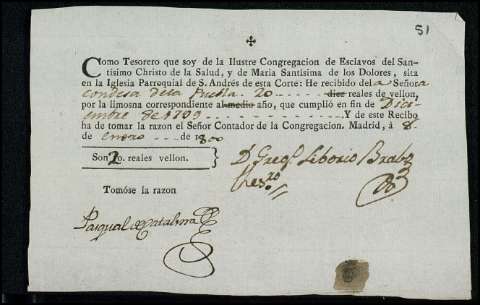 51
Como Tesorero que soy de la Ilustre Congregacion de Esclavos del San-
tisimo Christo de la Salud, y de Maria Santisima de los Dolores, sita
en la Iglesia Parroquial de S. Andrés de esta Corte: He recibido dela Señora
condesa dela Puebla 20 diez reales de vellon,
por la limosna correspondiente al medio año, que cumplió en fin de Dici-
embre de 1799 Y de este Recibo
ha de tomar la razon el Señor Contador de la Congregacion. Madrid, á 8
de enero de 1800
Son 20. reales vellon.
D. Greg.o Liborio Brabo
Thes.ro
Tomóse la razon
Pasqual de Catalina